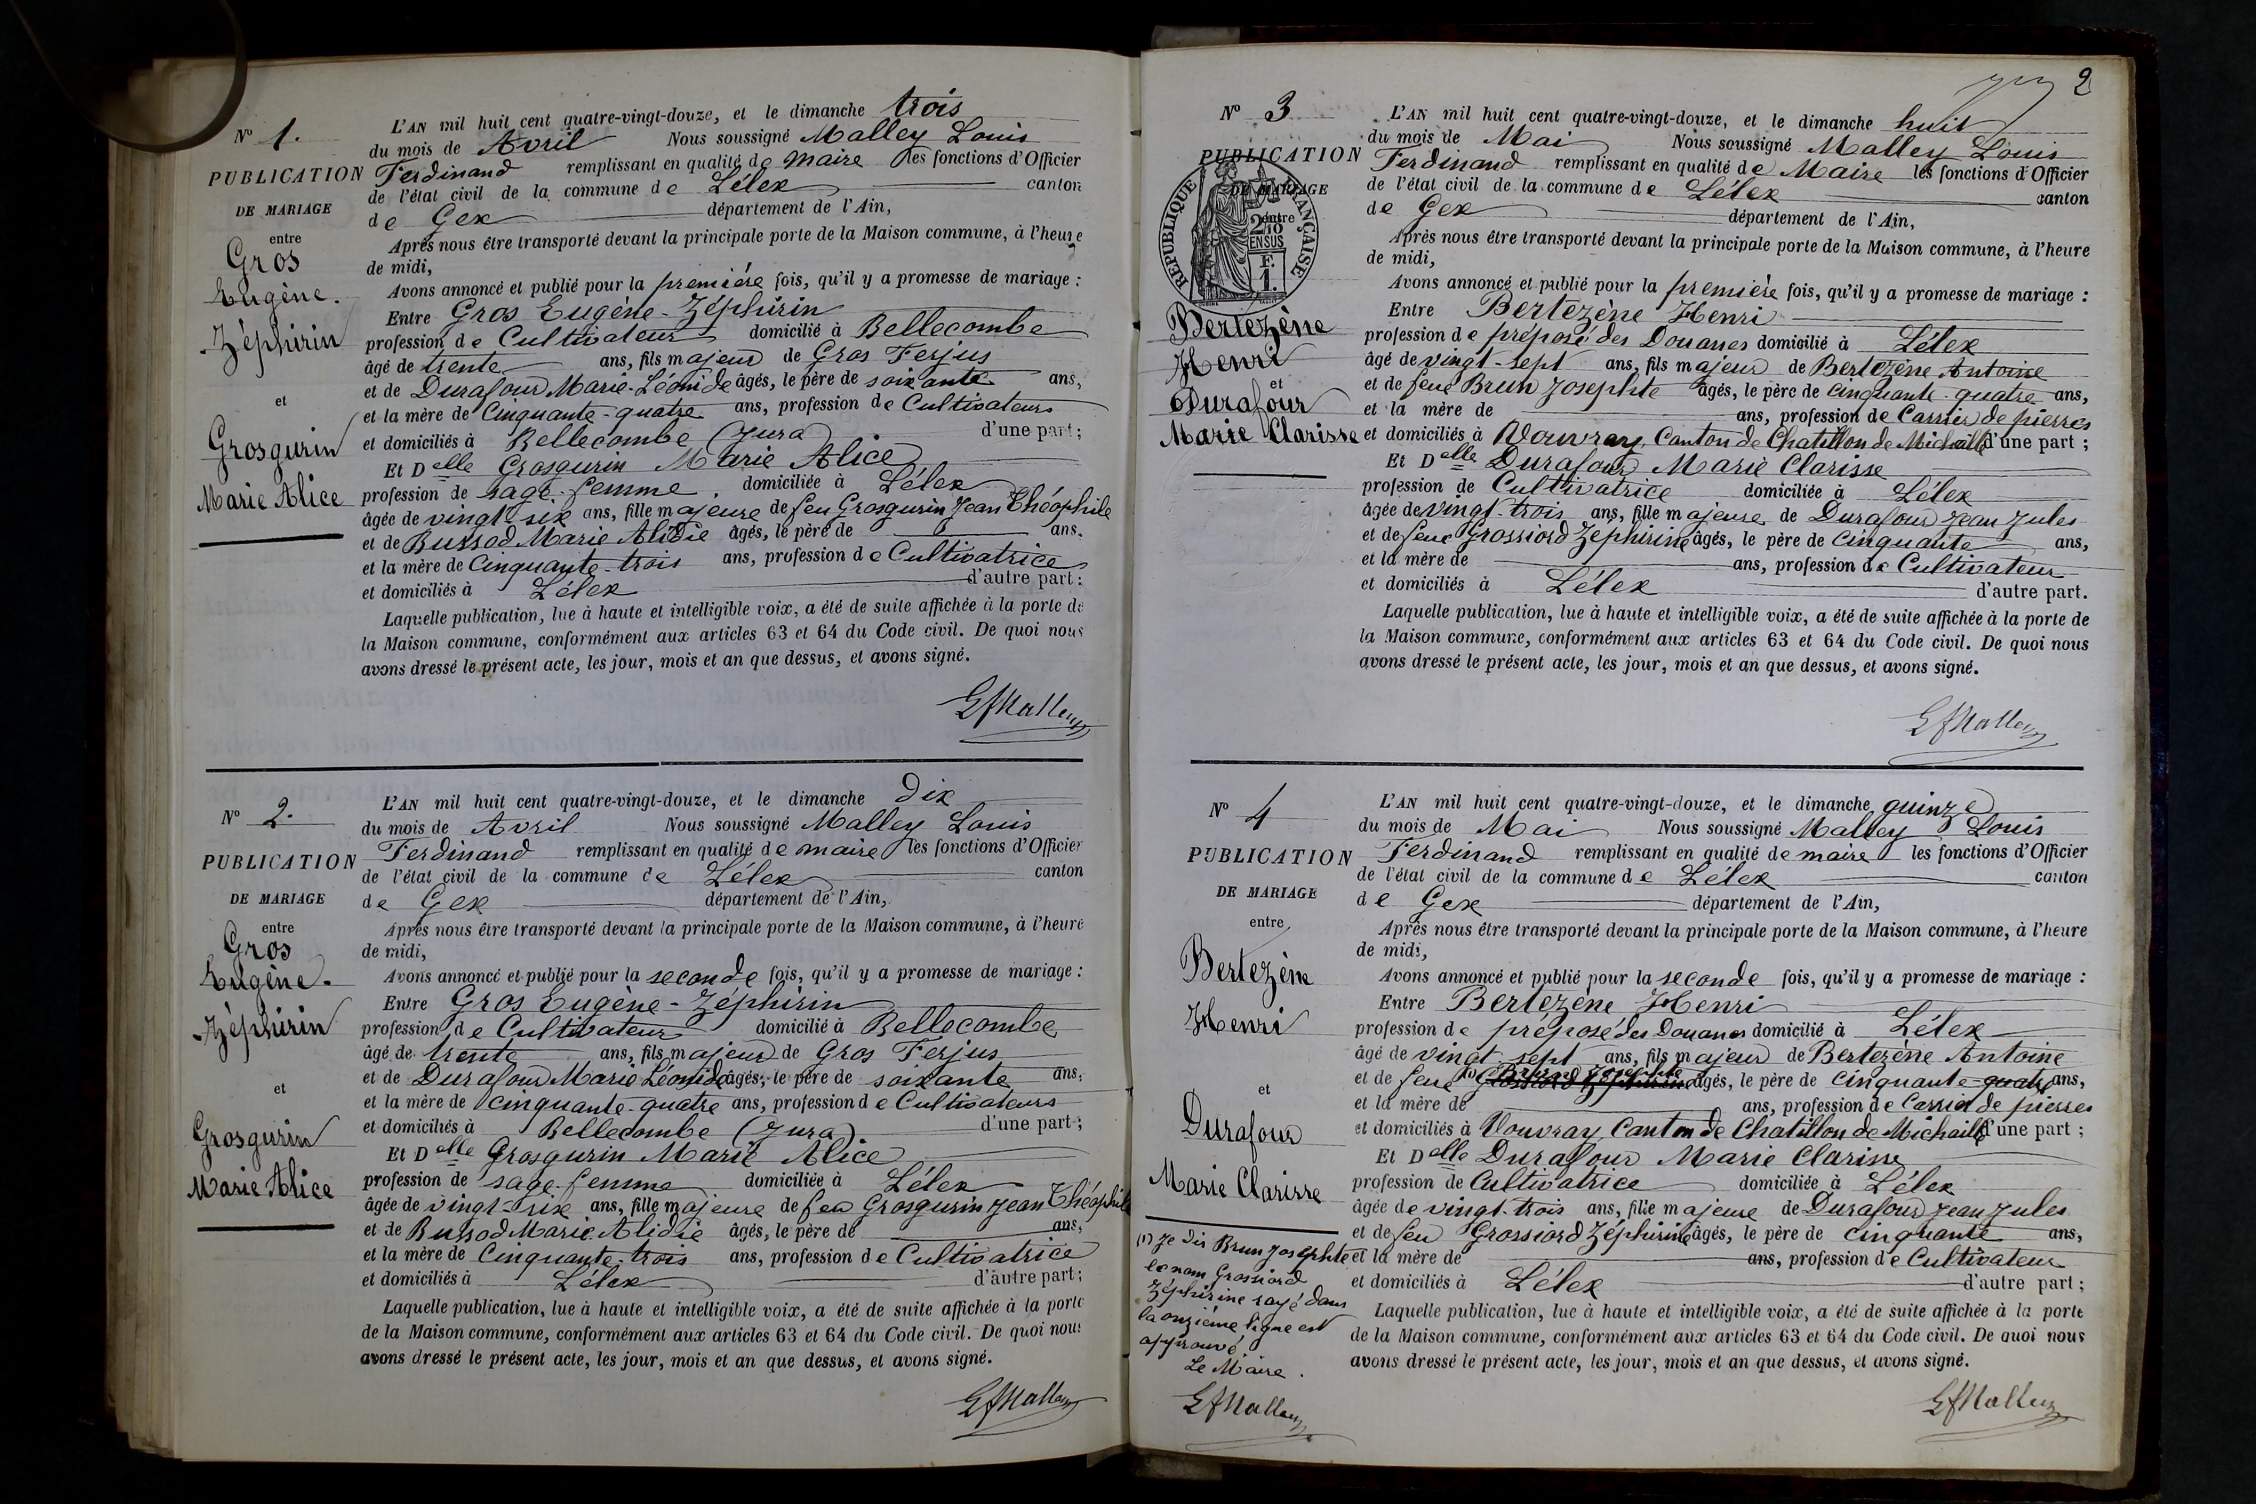 N° 1.
PUBLICATION
DE MARIAGE
entre
Gros
Eugène.
Zéphirin
et
Grosgurin
Marie Alice
L'AN mil huit cent quatre-vingt-douze, et le dimanche trois
du mois de Avril Nous soussigné Malley Louis
Ferdinand remplissant en qualité de maire les fonctions d'Officier
de l'état civil de la commune de Lélex canton
de Gex département de l'Ain,
Après nous être transporté devant la principale porte de la Maison commune, à l'heure
de midi,
Avons annoncé et publié pour la première fois, qu'il y a promesse de mariage :
Entre Gros Eugène-Zéphirin
profession de Cultivateur domicilié à Bellecombe
âgé de trente ans, fils majeur de Gros Ferjus
et de Durafour Marie-Léonide âgés, le père de soixante ans,
et la mère de Cinquante-quatre ans, profession de Cultivateurs
et domiciliés à Bellecombe (Jura) d'une part ;
Et Delle Grosgurin Marie Alice
profession de sage-femme, domiciliée à Lélex
âgée de vingt-six ans, fille majeure de feu Grosgurin Jean Théophile
et de Bussod Marie Alidie âgés, le père de ans.
et la mère de Cinquante-trois ans, profession de Cultivatrice
et domiciliés à Lélex d'autre part :
Laquelle publication, lue à haute et intelligible voix, a été de suite affichée à la porte de
la Maison commune, conformément aux articles 63 et 64 du Code civil. De quoi nous
avons dressé le présent acte, les jour, mois et an que dessus, et avons signé.
LfMalley
N° 2.
PUBLICATION
DE MARIAGE
entre
Gros
Eugène-
Zéphirin
et
Grosgurin
Marie Alice
L'AN mil huit cent quatre-vingt-douze, et le dimanche dix
du mois de Avril Nous soussigné Malley Louis
Ferdinand remplissant en qualité de maire les fonctions d'Officier
de l'état civil de la commune de Lélex canton
de Gex département de l'Ain,
Après nous être transporté devant la principale porte de la Maison commune, à l'heure
de midi,
Avons annoncé et publié pour la seconde fois, qu'il y a promesse de mariage :
Entre Gros Eugène-Zéphirin
profession de Cultivateur domicilié à Bellecombe
âgé de trente ans, fils majeur de Gros Ferjus
et de Durafour Marie Léonide âgés, le père de soixante ans,
et la mère de cinquante-quatre ans, profession de Cultivateurs
et domiciliés à Bellecombe (Jura) d'une part ;
Et Delle Grosgurin Marie Alice
profession de sage-femme domiciliée à Lélex
âgée de vingt-six ans, fille majeure de feu Grosgurin Jean Théophile
et de Bussod Marie Alidie âgés, le père de ans,
et la mère de Cinquante-trois ans, profession de Cultivatrice
et domiciliés à Lélex d'autre part ;
Laquelle publication, lue à haute et intelligible voix, a été de suite affichée à la porte
de la Maison commune, conformément aux articles 63 et 64 du Code civil. De quoi nous
avons dressé le présent acte, les jour, mois et an que dessus, et avons signé.
LfMalley
2
N° 3
PUBLICATION
DE MARIAGE
entre
RÉPUBLIQUE FRANÇAISE
2/10
EN SUS
F.
1.
Bertezène
Henri
et
Durafour
Marie Clarisse
L'AN mil huit cent quatre-vingt-douze, et le dimanche huit
du mois de Mai Nous soussigné Malley Louis
Ferdinand remplissant en qualité de Maire les fonctions d'Officier
de l'état civil de la commune de Lélex canton
de Gex département de l'Ain,
Après nous être transporté devant la principale porte de la Maison commune, à l'heure
de midi,
Avons annoncé et publié pour la première fois, qu'il y a promesse de mariage :
Entre Bertezène Henri
profession de préposé des Douanes domicilié à Lélex
âgé de vingt-sept ans, fils majeur de Bertezène Antoine
et de feue Brun Josephte âgés, le père de cinquante-quatre ans,
et la mère de ans, profession de Carrier de pierres
et domiciliés à Vouvray, Canton de Chatillon de Michaille d'une part ;
Et Delle Durafour Marie Clarisse
profession de Cultivatrice domiciliée à Lélex
âgée de vingt-trois ans, fille majeure de Durafour Jean Jules
et de feue Grossiord Zéphirine âgés, le père de cinquante ans,
et la mère de ans, profession de Cultivateur
et domiciliés à Lélex d'autre part.
Laquelle publication, lue à haute et intelligible voix, a été de suite affichée à la porte de
la Maison commune, conformément aux articles 63 et 64 du Code civil. De quoi nous
avons dressé le présent acte, les jour, mois et an que dessus, et avons signé.
LfMalley
N° 4
PUBLICATION
DE MARIAGE
entre
Bertezène
Henri
et
Durafour
Marie Clarisse
(1) Je dis Brun Josephte
le nom Grossiord
Zéphirine rayé dans
la onzième ligne est
approuvé
Le Maire.
LfMalley
L'AN mil huit cent quatre-vingt-douze, et le dimanche quinze
du mois de Mai Nous soussigné Malley Louis
Ferdinand remplissant en qualité de maire les fonctions d'Officier
de l'état civil de la commune de Lélex canton
de Gex département de l'Ain,
Après nous être transporté devant la principale porte de la Maison commune, à l'heure
de midi,
Avons annoncé et publié pour la seconde fois, qu'il y a promesse de mariage :
Entre Bertezène Henri
profession de préposé des Douanes domicilié à Lélex
âgé de vingt-sept ans, fils majeur de Bertezène Antoine
et de feue (1) Brun Josephte Grossiord Zéphirine âgés, le père de cinquante-quatre ans,
et la mère de ans, profession de Carrier de pierres
et domiciliés à Vouvray, Canton de Chatillon de Michaille d'une part ;
Et Delle Durafour Marie Clarisse
profession de Cultivatrice domiciliée à Lélex
âgée de vingt-trois ans, fille majeure de Durafour Jean Jules
et de feu Grossiord Zéphirine âgés, le père de cinquante ans,
et la mère de ans, profession de Cultivateur
et domiciliés à Lélex d'autre part ;
Laquelle publication, lue à haute et intelligible voix, a été de suite affichée à la porte
de la Maison commune, conformément aux articles 63 et 64 du Code civil. De quoi nous
avons dressé le présent acte, les jour, mois et an que dessus, et avons signé.
LfMalley